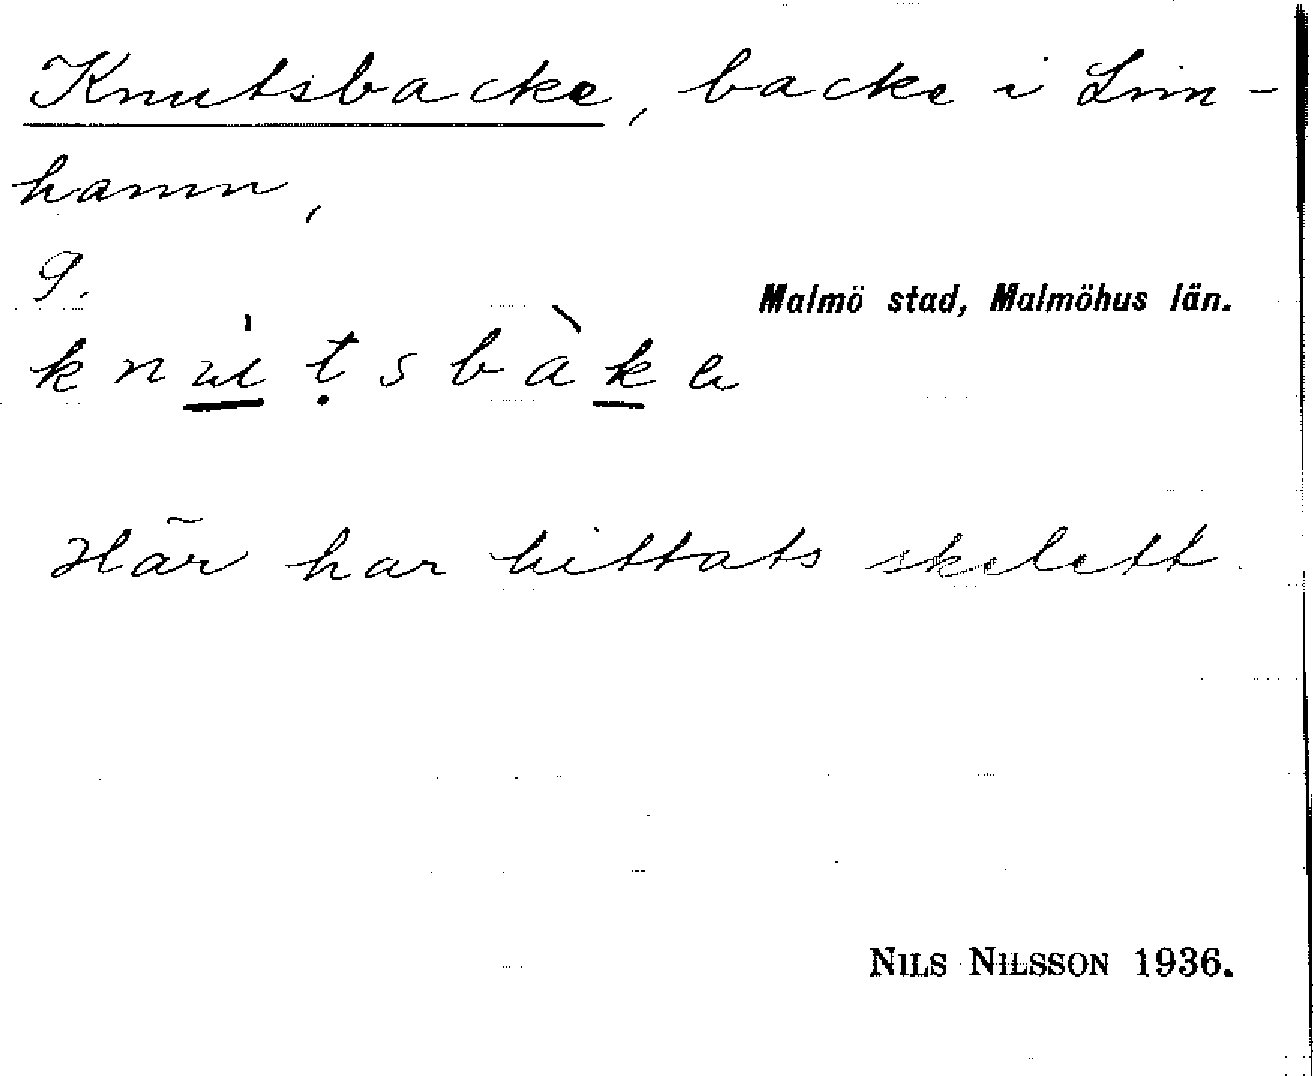 Knutsbacke, backe i Lim-
hamn,
g.
Malmö stad, Malmöhus län.
knu̲̍ṭsbàk̲a
Här har hittats skelett.
NILS NILSSON 1936.